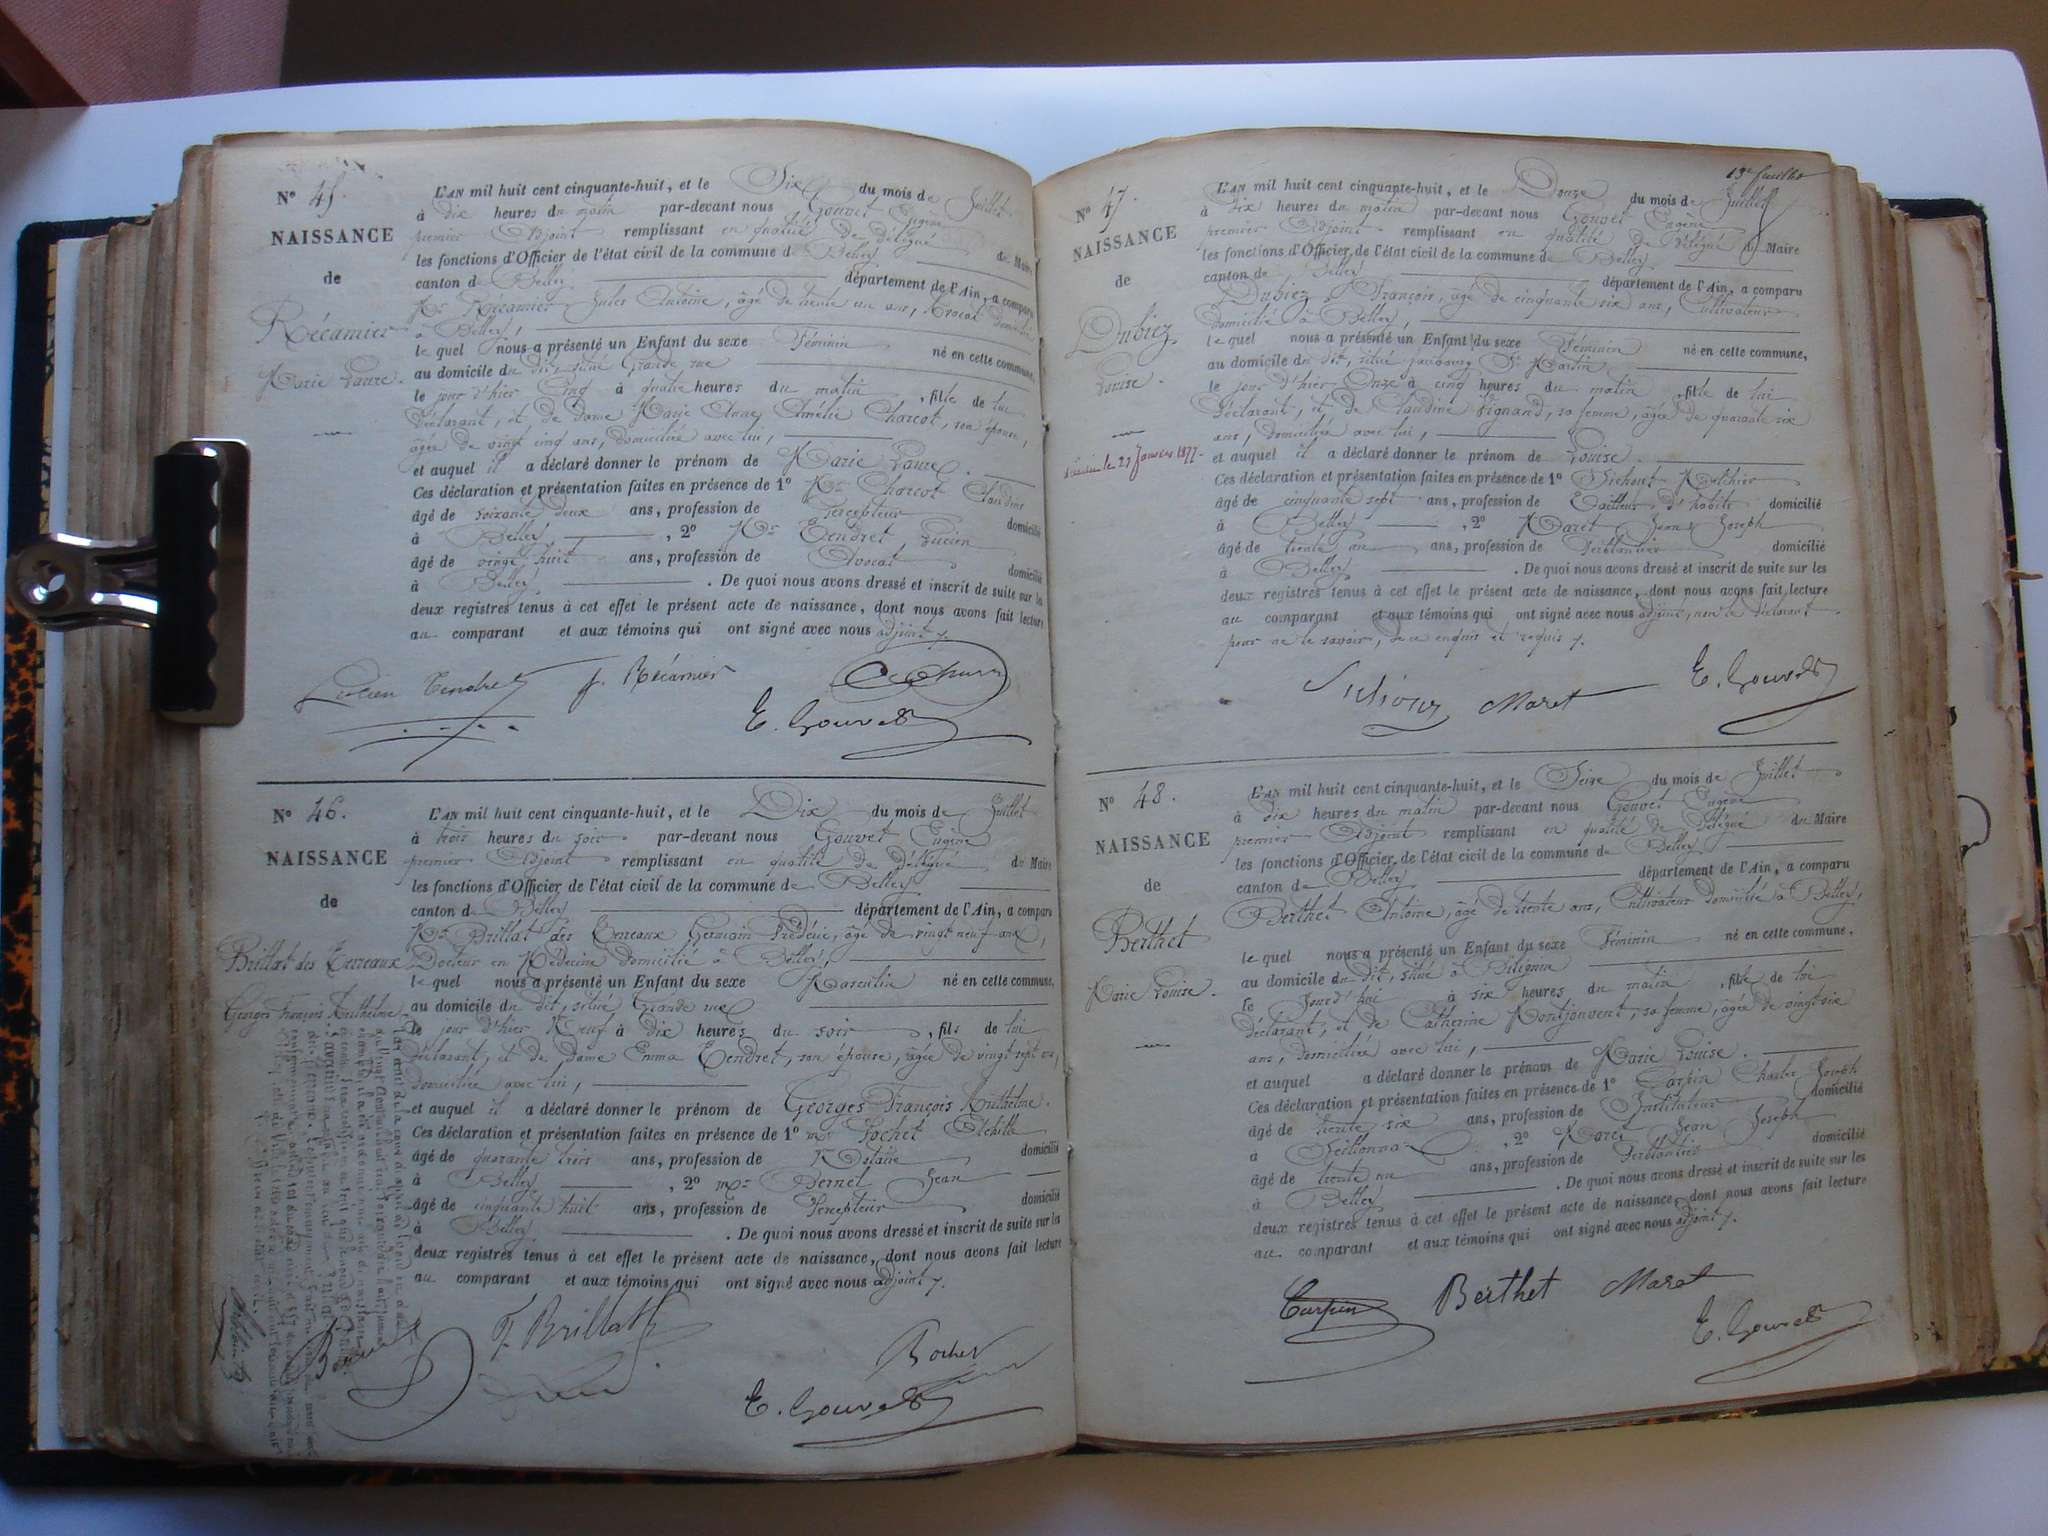 N° 45.
NAISSANCE
de
Récamier
Marie Laure.
L'AN mil huit cent cinquante-huit, et le Six du mois de Juillet
à dix heures du matin par-devant nous Gouvet Eugène
premier Adjoint remplissant en qualité de délégué du Maire
les fonctions d'Officier de l'état civil de la commune de Belley
canton de Belley département de l'Ain, a comparu
Mr Récamier Jules Antoine, âgé de trente un ans, Avocat domicilié
à Belley,
le quel nous a présenté un Enfant du sexe Féminin né en cette commune,
au domicile du dit, situé Grande rue
le jour d'hier Cinq à quatre heures du matin, fille de lui
déclarant, et de dame Marie Anne Amélie Charcot, son épouse,
âgée de vingt cinq ans, domiciliée avec lui,
et auquel il a déclaré donner le prénom de Marie Laure.
Ces déclaration et présentation faites en présence de 1° Mr Charcot
âgé de soixante deux ans, profession de Percepteur domicilié
à Belley, 2° Mr Tendret Lucien
âgé de vingt huit ans, profession de Avocat domicilié
à Belley. De quoi nous avons dressé et inscrit de suite sur les
deux registres tenus à cet effet le présent acte de naissance, dont nous avons fait lecture
au comparant et aux témoins qui ont signé avec nous adjoint.
Lucien Tendret J. Récamier
E. Gouvet
N° 46.
NAISSANCE
de
Brillat des Terreaux
Georges François Anthelme
L'AN mil huit cent cinquante-huit, et le Dix du mois de Juillet
à trois heures du soir par-devant nous Gouvet Eugène
premier Adjoint remplissant en qualité de délégué du Maire
les fonctions d'Officier de l'état civil de la commune de Belley
canton d Belley département de l'Ain, a comparu
Mr Brillat des Terreaux Germain Frédéric, âgé de vingt neuf ans,
Docteur en Médecine domicilié à Belley,
le quel nous a présenté un Enfant du sexe Masculin né en cette commune,
au domicile du dit, situé Grande rue
le jour d'hier Neuf à dix heures du soir, fils de lui
déclarant, et de dame Emma Tendret, son épouse, âgée de vingt sept ans,
domiciliée avec lui,
et auquel il a déclaré donner le prénom de Georges François Anthelme.
Ces déclaration et présentation faites en présence de 1° mr Rochet Achille
âgé de quarante trois ans, profession de Notaire domicilié
à Belley, 2° mr Bernet Jean
âgé de cinquante huit ans, profession de Percepteur domicilié
à Belley. De quoi nous avons dressé et inscrit de suite sur les
deux registres tenus à cet effet le présent acte de naissance, dont nous avons fait lecture
au comparant et aux témoins qui ont signé avec nous adjoint.
F. Brillat
Rochet
E. Gouvet
N° 47.
NAISSANCE
de
Dubiez
Louise.
le 27 Janvier 1877.
L'AN mil huit cent cinquante-huit, et le Douze du mois de Juillet
à dix heures du matin par-devant nous Gouvet Eugène
premier Adjoint remplissant en qualité de délégué du Maire
les fonctions d'Officier de l'état civil de la commune de Belley
canton de Belley département de l'Ain, a comparu
Dubiez François, âgé de cinquante six ans, Cultivateur
domicilié à Belley,
le quel nous a présenté un Enfant du sexe Féminin né en cette commune,
au domicile du dit, situé faubourg St Martin
le jour d'hier Onze à cinq heures du matin, fille de lui
déclarant, et de Claudine Vignand, sa femme, âgée de quarante six
ans, domiciliée avec lui,
et auquel il a déclaré donner le prénom de Louise.
Ces déclaration et présentation faites en présence de 1° Melchior
âgé de cinquante sept ans, profession de Tailleur d'habits domicilié
à Belley, 2° Maret Jean Joseph
âgé de trente un ans, profession de Ferblantier domicilié
à Belley. De quoi nous avons dressé et inscrit de suite sur les
deux registres tenus à cet effet le présent acte de naissance, dont nous avons fait lecture
au comparant et aux témoins qui ont signé avec nous adjoint, non le déclarant
pour ne le savoir, de ce enquis et requis.
Maret E. Gouvet
N° 48.
NAISSANCE
de
Berthet
Marie Louise.
L'AN mil huit cent cinquante-huit, et le Seize du mois de Juillet
à dix heures du matin par-devant nous Gouvet Eugène
premier Adjoint remplissant en qualité de délégué du Maire
les fonctions d'Officier de l'état civil de la commune de Belley
canton de Belley département de l'Ain, a comparu
Berthet Antoine, âgé de trente ans, Cultivateur domicilié à Belley,
le quel nous a présenté un Enfant du sexe Féminin né en cette commune,
au domicile du dit, situé à Billignin
le Jourd'hui à six heures du matin, fille de lui
déclarant, et de Catherine Montjouvent, sa femme, âgée de vingt six
ans, domiciliée avec lui,
et auquel a déclaré donner le prénom de Marie Louise.
Ces déclaration et présentation faites en présence de 1° Carpin Charles Joseph
âgé de trente six ans, profession de domicilié
à 2° Maret Jean Joseph
âgé de trente un ans, profession de Ferblantier domicilié
à Belley. De quoi nous avons dressé et inscrit de suite sur les
deux registres tenus à cet effet le présent acte de naissance, dont nous avons fait lecture
au comparant et aux témoins qui ont signé avec nous adjoint.
Carpin Berthet Maret
E. Gouvet